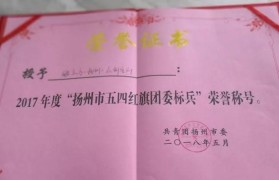 荣誉证书
授予
:
2017年度“扬州市五四红旗团委标兵”荣誉称号。
共青团扬州市委
二〇一八年五月